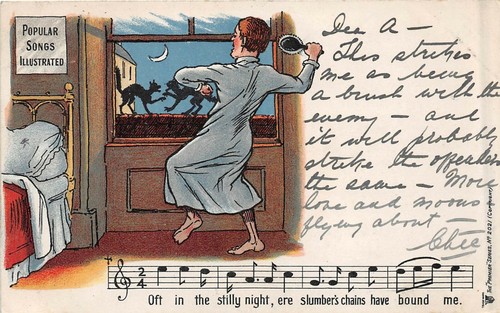 POPULAR
SONGS
ILLUSTRATED
Dea A –
This strikes
me as being
a brush with the
enemy – and
it will probably
strike the
the same – More
love and moons
flying about –
2
4
Oft in the stilly night, ere slumber's chains have bound me.
THE "PIONEER" SERIES, Nº 2021 (Copyright)